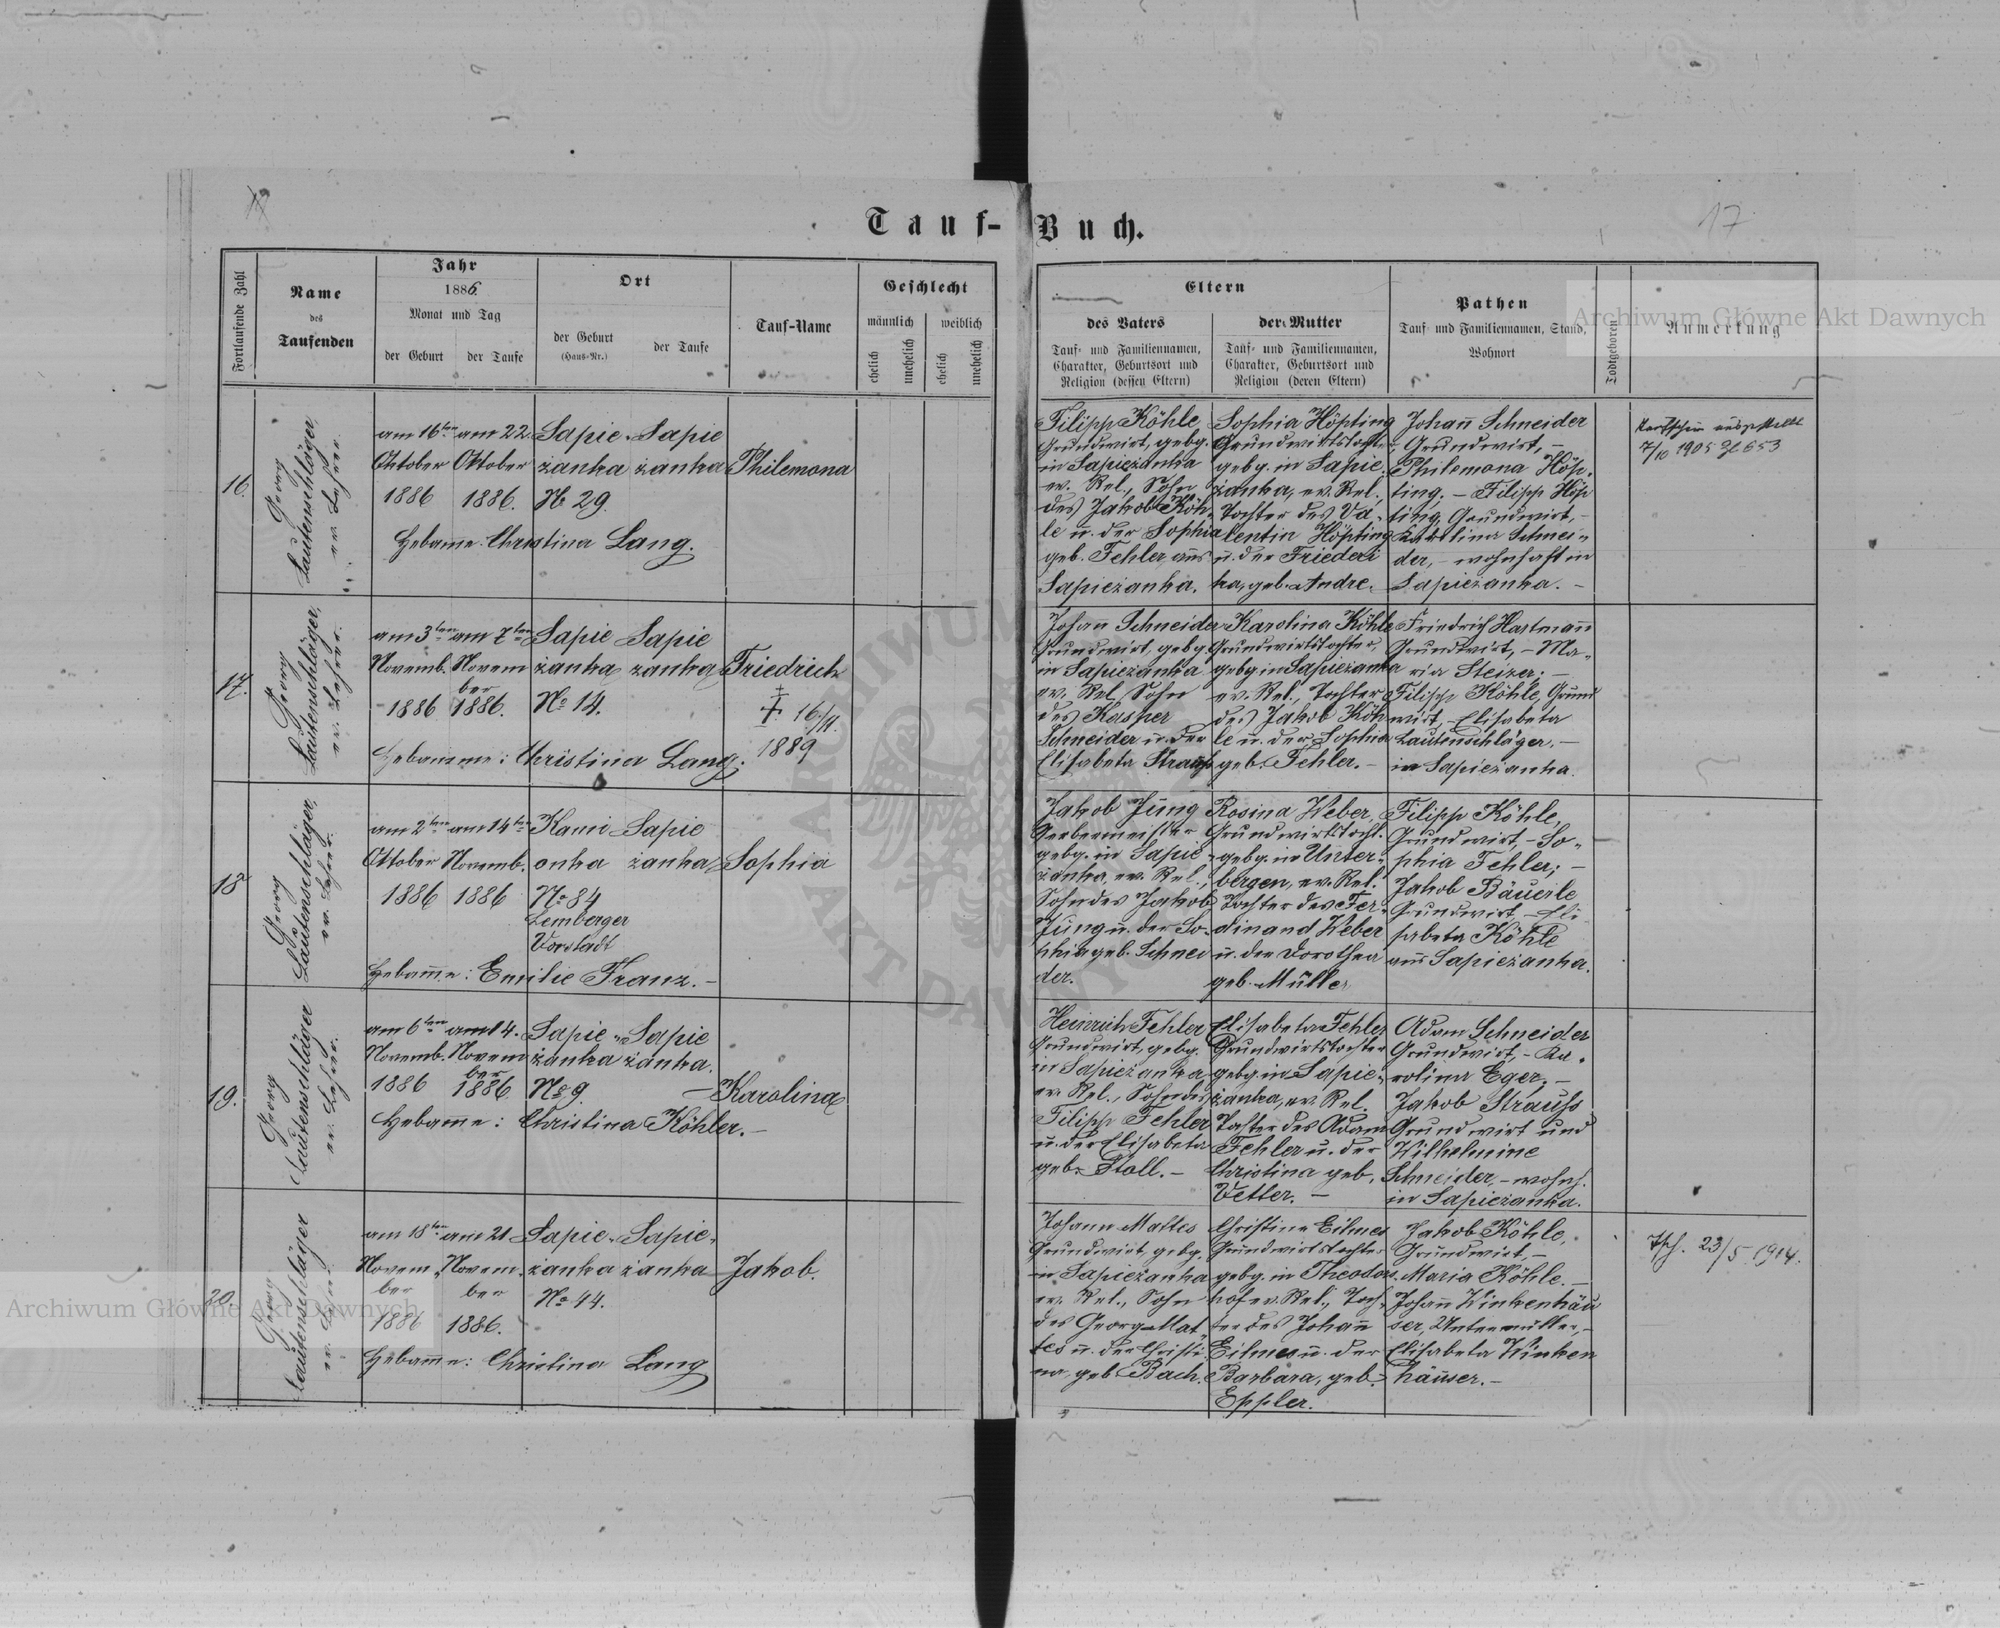 17
Tauf-Buch.
Fortlaufende Zahl
Name
des
Taufenden
Jahr
1886.
Monat und Tag
der Geburt
der Taufe
Ort
der Geburt
(Haus-Nr.)
der Taufe
Tauf-Name
Geschlecht
männlich
weiblich
ehelich
unehelich
ehelich
unehelich
Eltern
des Vaters
Tauf- und Familiennamen,
Charakter, Geburtsort und
Religion (dessen Eltern)
der Mutter
Tauf- und Familiennamen,
Charakter, Geburtsort und
Religion (deren Eltern)
Pathen
Tauf- und Familiennamen, Stand,
Wohnort
Todtgeboren
Anmerkung
16.
Georg
Lautenschläger,
ev. Lehrer.
am 16ten
Oktober
1886
am 22.
Oktober
1886.
Sapie-
żanka
№ 29.
Sapie
żanka
Hebame Christina Lang.
Philemona
Filipp Köhle
Grundwirt, gebg.
in Sapieżanka
ev. Rel., Sohn
des Jakob Köh-
le u. der Sophia
geb. Fehler aus
Sapieżanka.
Sophia Höpting
Grundwirtstochter
gebg. in Sapie-
żanka, ev. Rel.,
Tochter des Va-
lentin Höpting
u. der Friederi
ka, geb. Andre.
Johann Schneider
Grundwirt, -
Philemona Höp-
ting. - Filipp Höp
ting, Grundwirt, -
Karolina Schnei-
der, - wohnhaft in
Sapieżanka. -
7/10 1905 Zl 653
17.
Georg
Lautenschläger,
ev. Lehrer.
am 3ten
Novemb.
1886
am 7ten
Novem
ber
1886.
Sapie
żanka
№ 14.
Sapie
żanka
Hebamme: Christina Lang.
Friedrich
‡ 16/11.
1889
Johann Schneider
Grundwirt, gebg
in Sapieżanka
ev. Rel, Sohn
des Kasper
Schneider u. der
Elisabeta Strauss
Karolina Köhle
Grundwirtstochter,
gebg in Sapieżanka
ev. Rel., Tochter
des Jakob Köh
le u. der Sophia
geb. Fehler. -
Friedrich Hartmann
Grundwirt, - Ma-
ria Steizer; -
Filipp Köhle, Grund
wirt, - Elisabeta
Lautenschläger. -
in Sapieżanka.
18
Georg
Lautenschläger,
ev. Lehrer.
am 2ten
Oktober
1886
am 14ten
Novemb.
1886
Kami-
onka
№ 84
Lemberger
Vorstadt
Sapie
żanka
Hebamme: Emilie Franz. -
Sophia
Jakob Jung
Gerbermeister
gebg. in Sapie-
żanka, ev. Rel.,
Sohn des Jakob
Jung u. der So-
phia geb. Schnei
der.
Rosina Weber,
Grundwirtstocht.
gebg. in Unter-
bergen, ev. Rel.
Tochter des Fer-
dinand Weber
u. der Dorothea
geb. Müller
Filipp Köhle,
Grundwirt, - So-
phia Fehler; -
Jakob Bäuerle
Grundwirt, - Eli
sabeta Köhle
aus Sapieżanka.
19.
Georg
Lautenschläger
ev. Lehrer.
am 6ten
Novemb.
1886
am 14.
Novem
ber
1886
Sapie-
żanka
№ 9.
Sapie
żanka.
Hebamme: Christina Köhler. -
Karolina
Heinrich Fehler
Grundwirt, gebg.
in Sapieżanka
ev. Rel., Sohn des
Filipp Fehler
u. der Elisabeta
geb. Stoll. -
Elisabeta Fehler
Grundwirtstochter
gebg. in Sapie-
żanka, ev. Rel.
Tochter des Adam
Fehler u. der
Christina geb.
Vetter. -
Adam Schneider
Grundwirt, - Ka-
rolina Eger; -
Jakob Strauss
Grundwirt und
Wilhelmine
Schneider, - wohnh.
in Sapieżanka.
20.
Georg
Lautenschläger
ev. Lehrer
am 18ten
Novem-
ber
1886
am 21
Novem.
ber
1886.
Sapie-
żanka
№ 44.
Sapie-
żanka
Hebamme: Christina Lang
Jakob.
Johann Mattes
Grundwirt, gebg.
in Sapieżanka
ev. Rel., Sohn
des Georg Mat-
tes u. der Christi-
na geb. Bach.
Christine Eilmes
Grundwirtstochter
gebg. in Theodors-
hof ev. Rel., Toch-
ter des Johann
Eilmes u. der
Barbara, geb.
Eppler.
Jakob Köhle,
Grundwirt, -
Maria Köhle. -
Johann Winkenhäu
ser, Untermüller, -
Elisabeta Winken
häuser. -
Tsch. 23/5 1914.
Archiwum Główne Akt Dawnych
Archiwum Główne Akt Dawnych
ARCHIWUM
AKT DAWNYCH